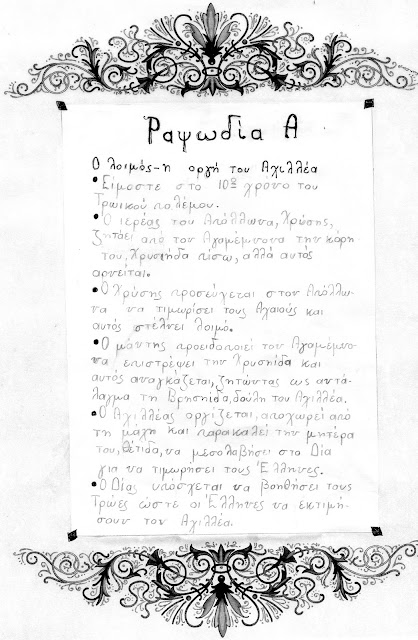 Ραψωδία Α
Ο λοιμός-η οργή του Αχιλλέα
• Είμαστε στο 10ο χρόνο του
Τρωικού πολέμου.
• Ο ιερέας του Απόλλωνα, Χρύσης,
ζητάει από τον Αγαμέμνονα την κόρη
του, Χρυσηίδα πίσω, αλλά αυτός
αρνείται.
• Ο Χρύσης προσεύχεται στον Απόλλω-
να να τιμωρίσει τους Αχαιούς και
αυτός στέλνει λοιμό.
• Ο μάντης προειδοποιεί τον Αγαμέμνο-
να να επιστρέψει την Χρυσηίδα και
αυτός αναγκάζεται, ζητώντας ως αντά-
λαγμα τη Βρησηίδα, δούλη του Αχιλλέα.
• Ο Αχιλλέας οργίζεται, αποχωρεί από
τη μάχη και παρακαλεί την μητέρα
του, Θέτιδα, να μεσολαβήσει στο Δία
για να τιμωρήσει τους Έλληνες.
• Ο Δίας υπόσχεται να βοηθήσει τους
Τρώες ώστε οι Έλληνες να εκτιμή-
σουν τον Αχιλλέα.